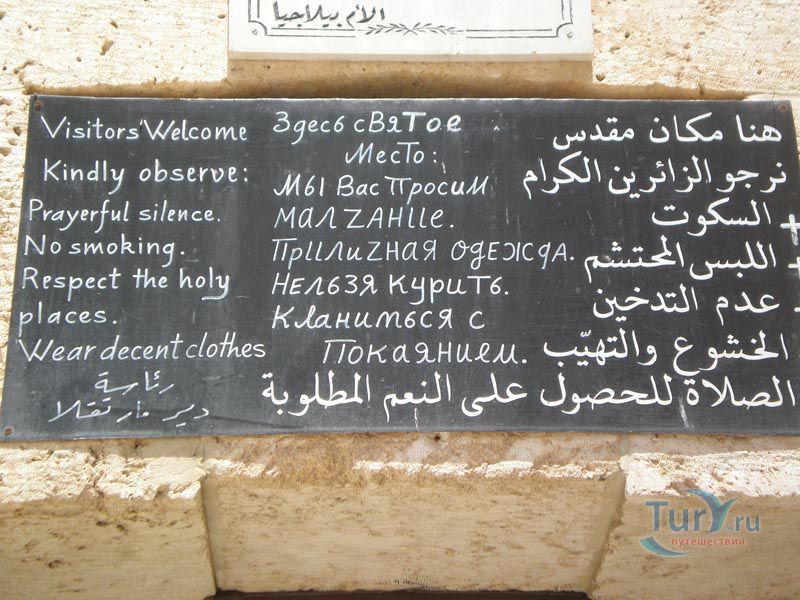 الأم بيلاجيا
Visitors' Welcome
Kindly observe:
Prayerful silence.
No smoking.
Respect the holy
places.
Wear decent clothes
رئاسة
دير مار تقلا
Здесь святое
Место:
Мы Вас Просим
малzание.
Прилиzная одежда.
Нельзя курить.
Кланиться с
Покаянием.
هنا مكان مقدس
نرجو الزائرين الكرام
+ السكوت
+ اللبس المحتشم
- عدم التدخين
الخشوع والتهيّب
الصلاة للحصول على النعم المطلوبة
Tury.ru
путешествия